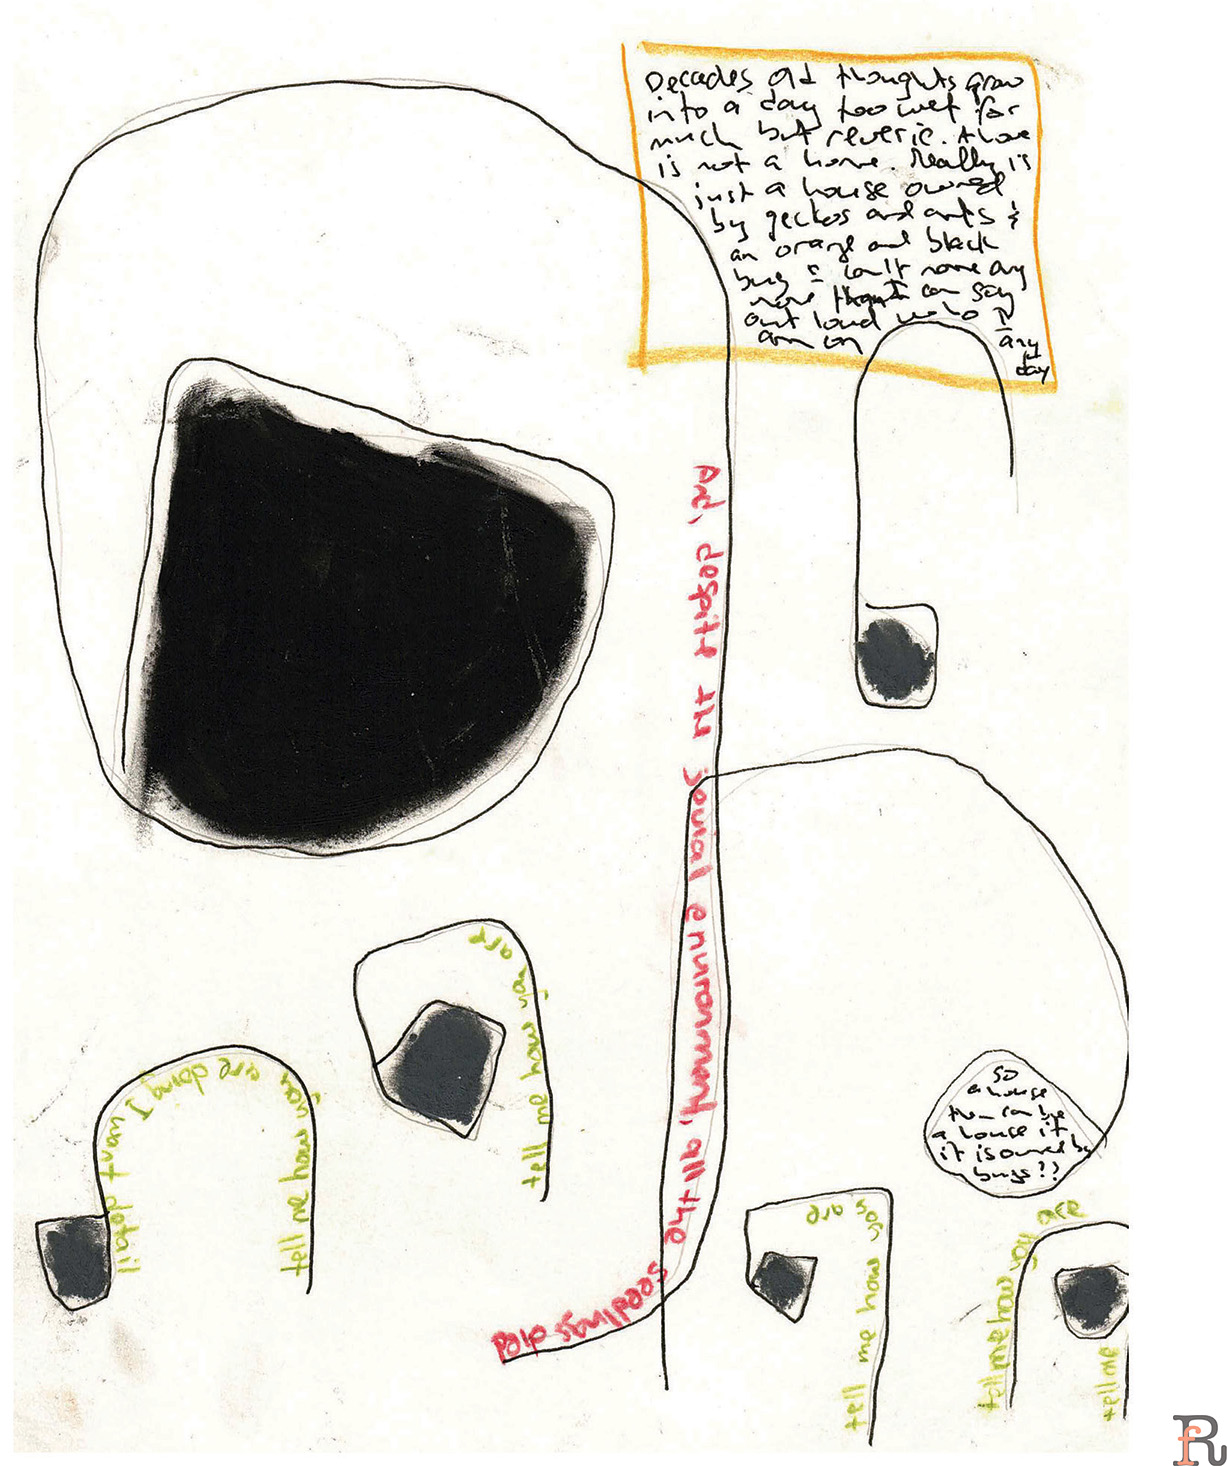 Decades old thoughts grow
into a day too wet for
much but reverie. A home
is not a home. Really is
just a house owned
by geckos and ants &
an orange and black
bug I can't name any
more than I can say
out loud who I
am on any
day
And, despite the
social environment, all the
seedlings died
tell me how you are
tell me how you are doing I want
detail
So
a house
then can be
a house if
it is owned by
bugs??
tell me how you are
tell me how you are
tell me
fR